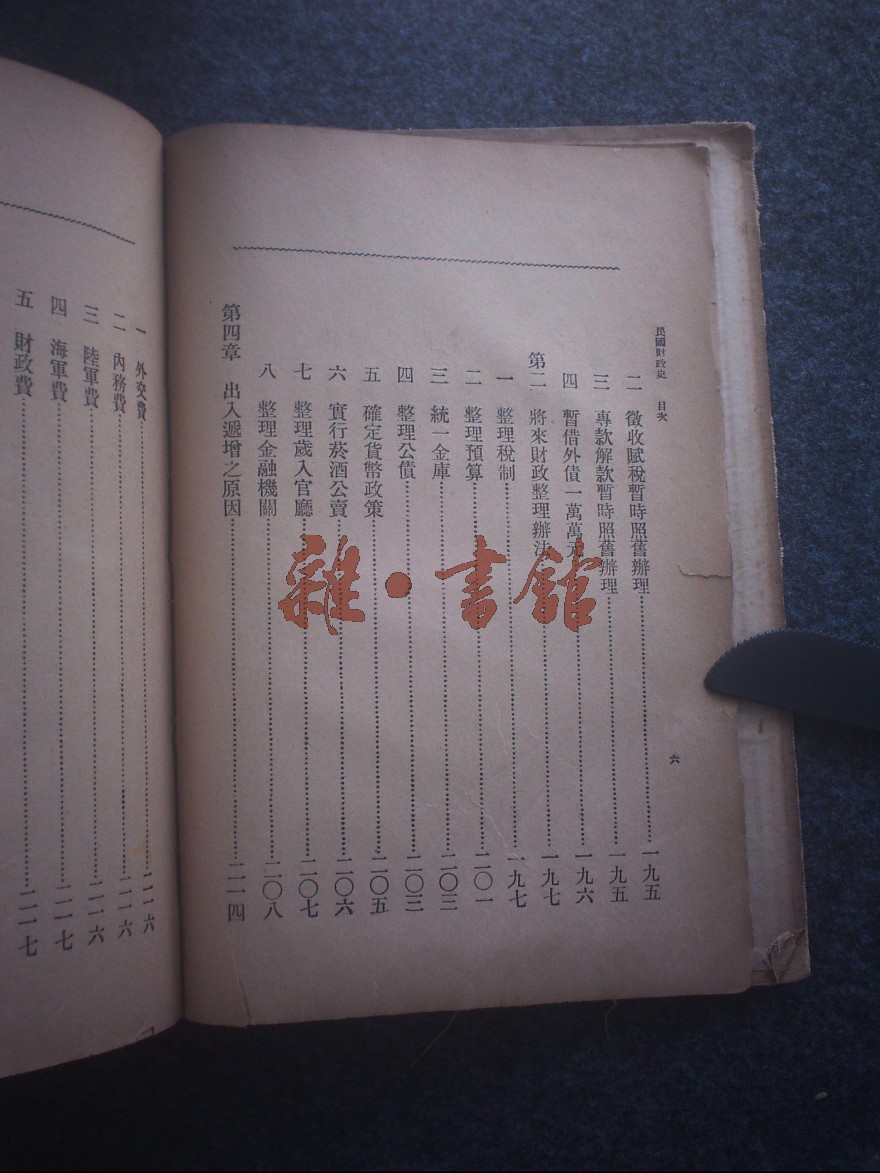 民國財政史 目次
六
二 徵收賦稅暫時照舊辦理……一九五
三 專款解款暫時照舊辦理……一九五
四 暫借外債一萬萬元……一九六
第二 將來財政整理辦法……一九七
一 整理稅制……一九七
二 整理預算……二〇一
三 統一金庫……二〇三
四 整理公債……二〇三
五 確定貨幣政策……二〇五
六 實行菸酒公賣……二〇六
七 整理歲入官廳……二〇七
八 整理金融機關……二〇八
第四章 出入遞增之原因……二一四
一 外交費……二一六
二 內務費……二一六
三 陸軍費……二一六
四 海軍費……二一七
五 財政費……二一七
雜·書館